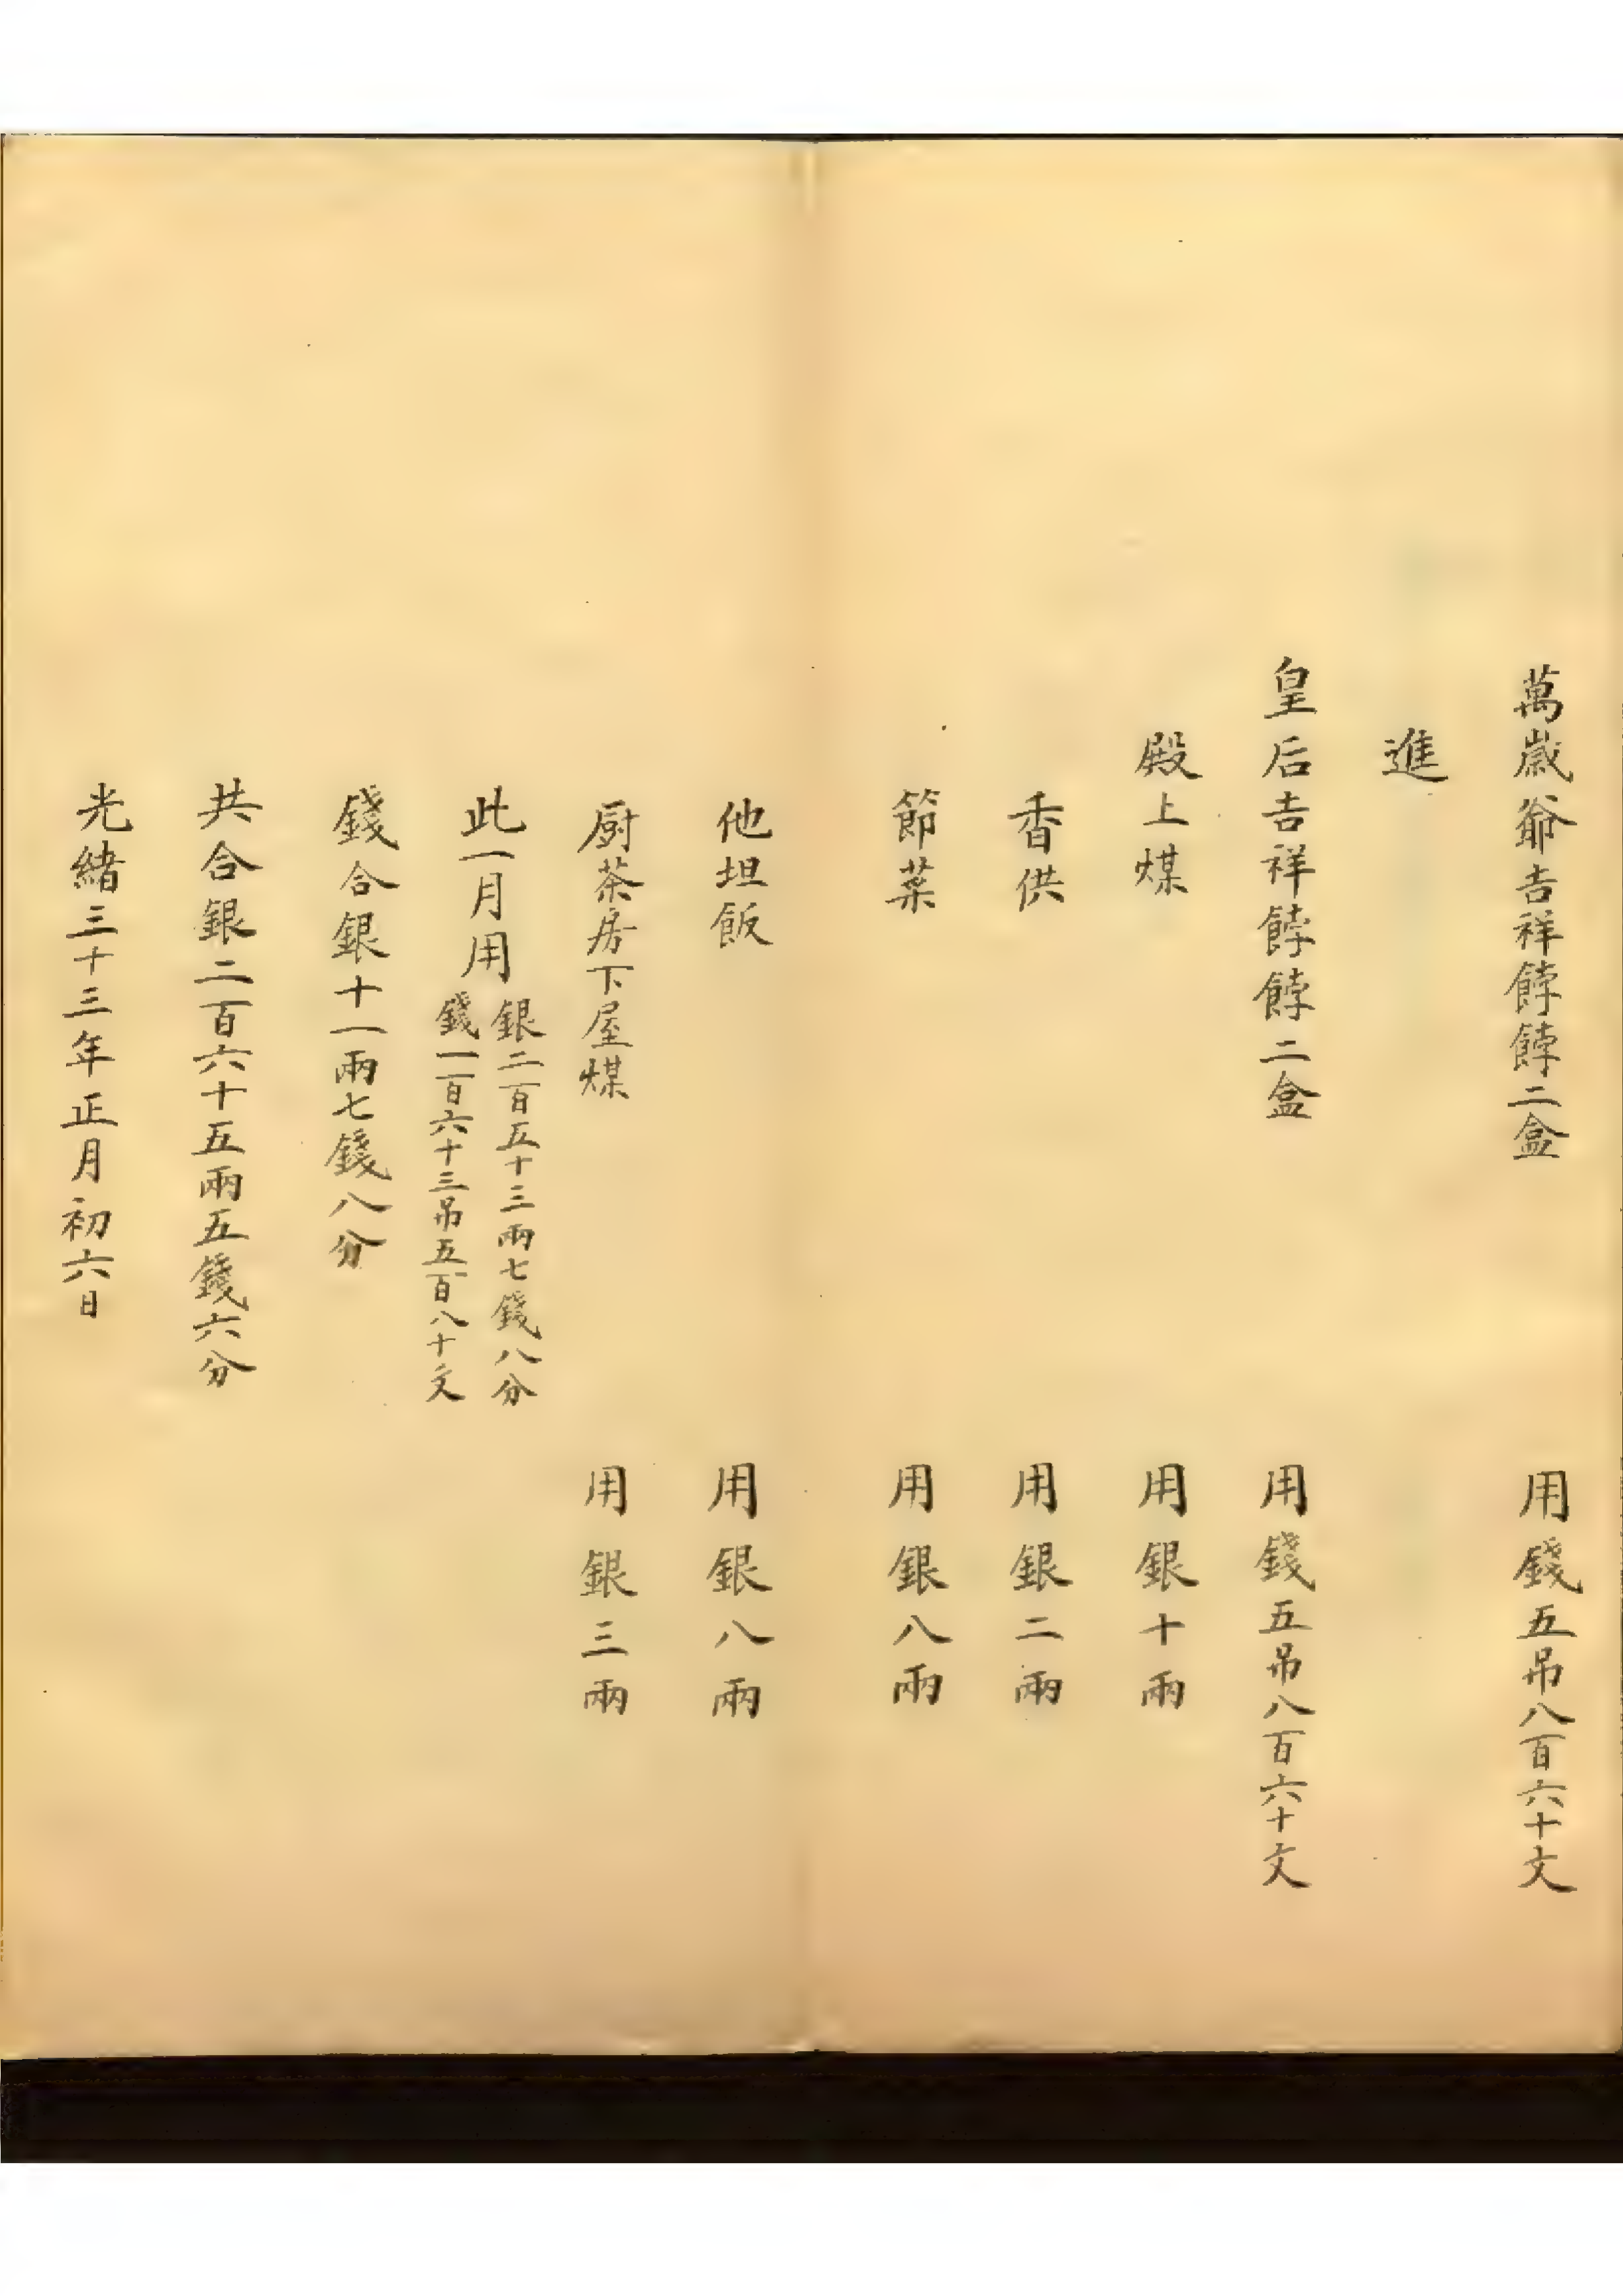 萬歲爺吉祥餑餑二盒　用錢五吊八百六十文
進
皇后吉祥餑餑二盒　用錢五吊八百六十文
殿上煤　用銀十兩
香供　用銀二兩
節菜　用銀八兩
他坦飯　用銀八兩
厨茶房下屋煤　用銀三兩
此一月用
銀二百五十三兩七錢八分
錢一百六十三吊五百八十文
錢合銀十一兩七錢八分
共合銀二百六十五兩五錢六分
光緒三十三年正月初六日